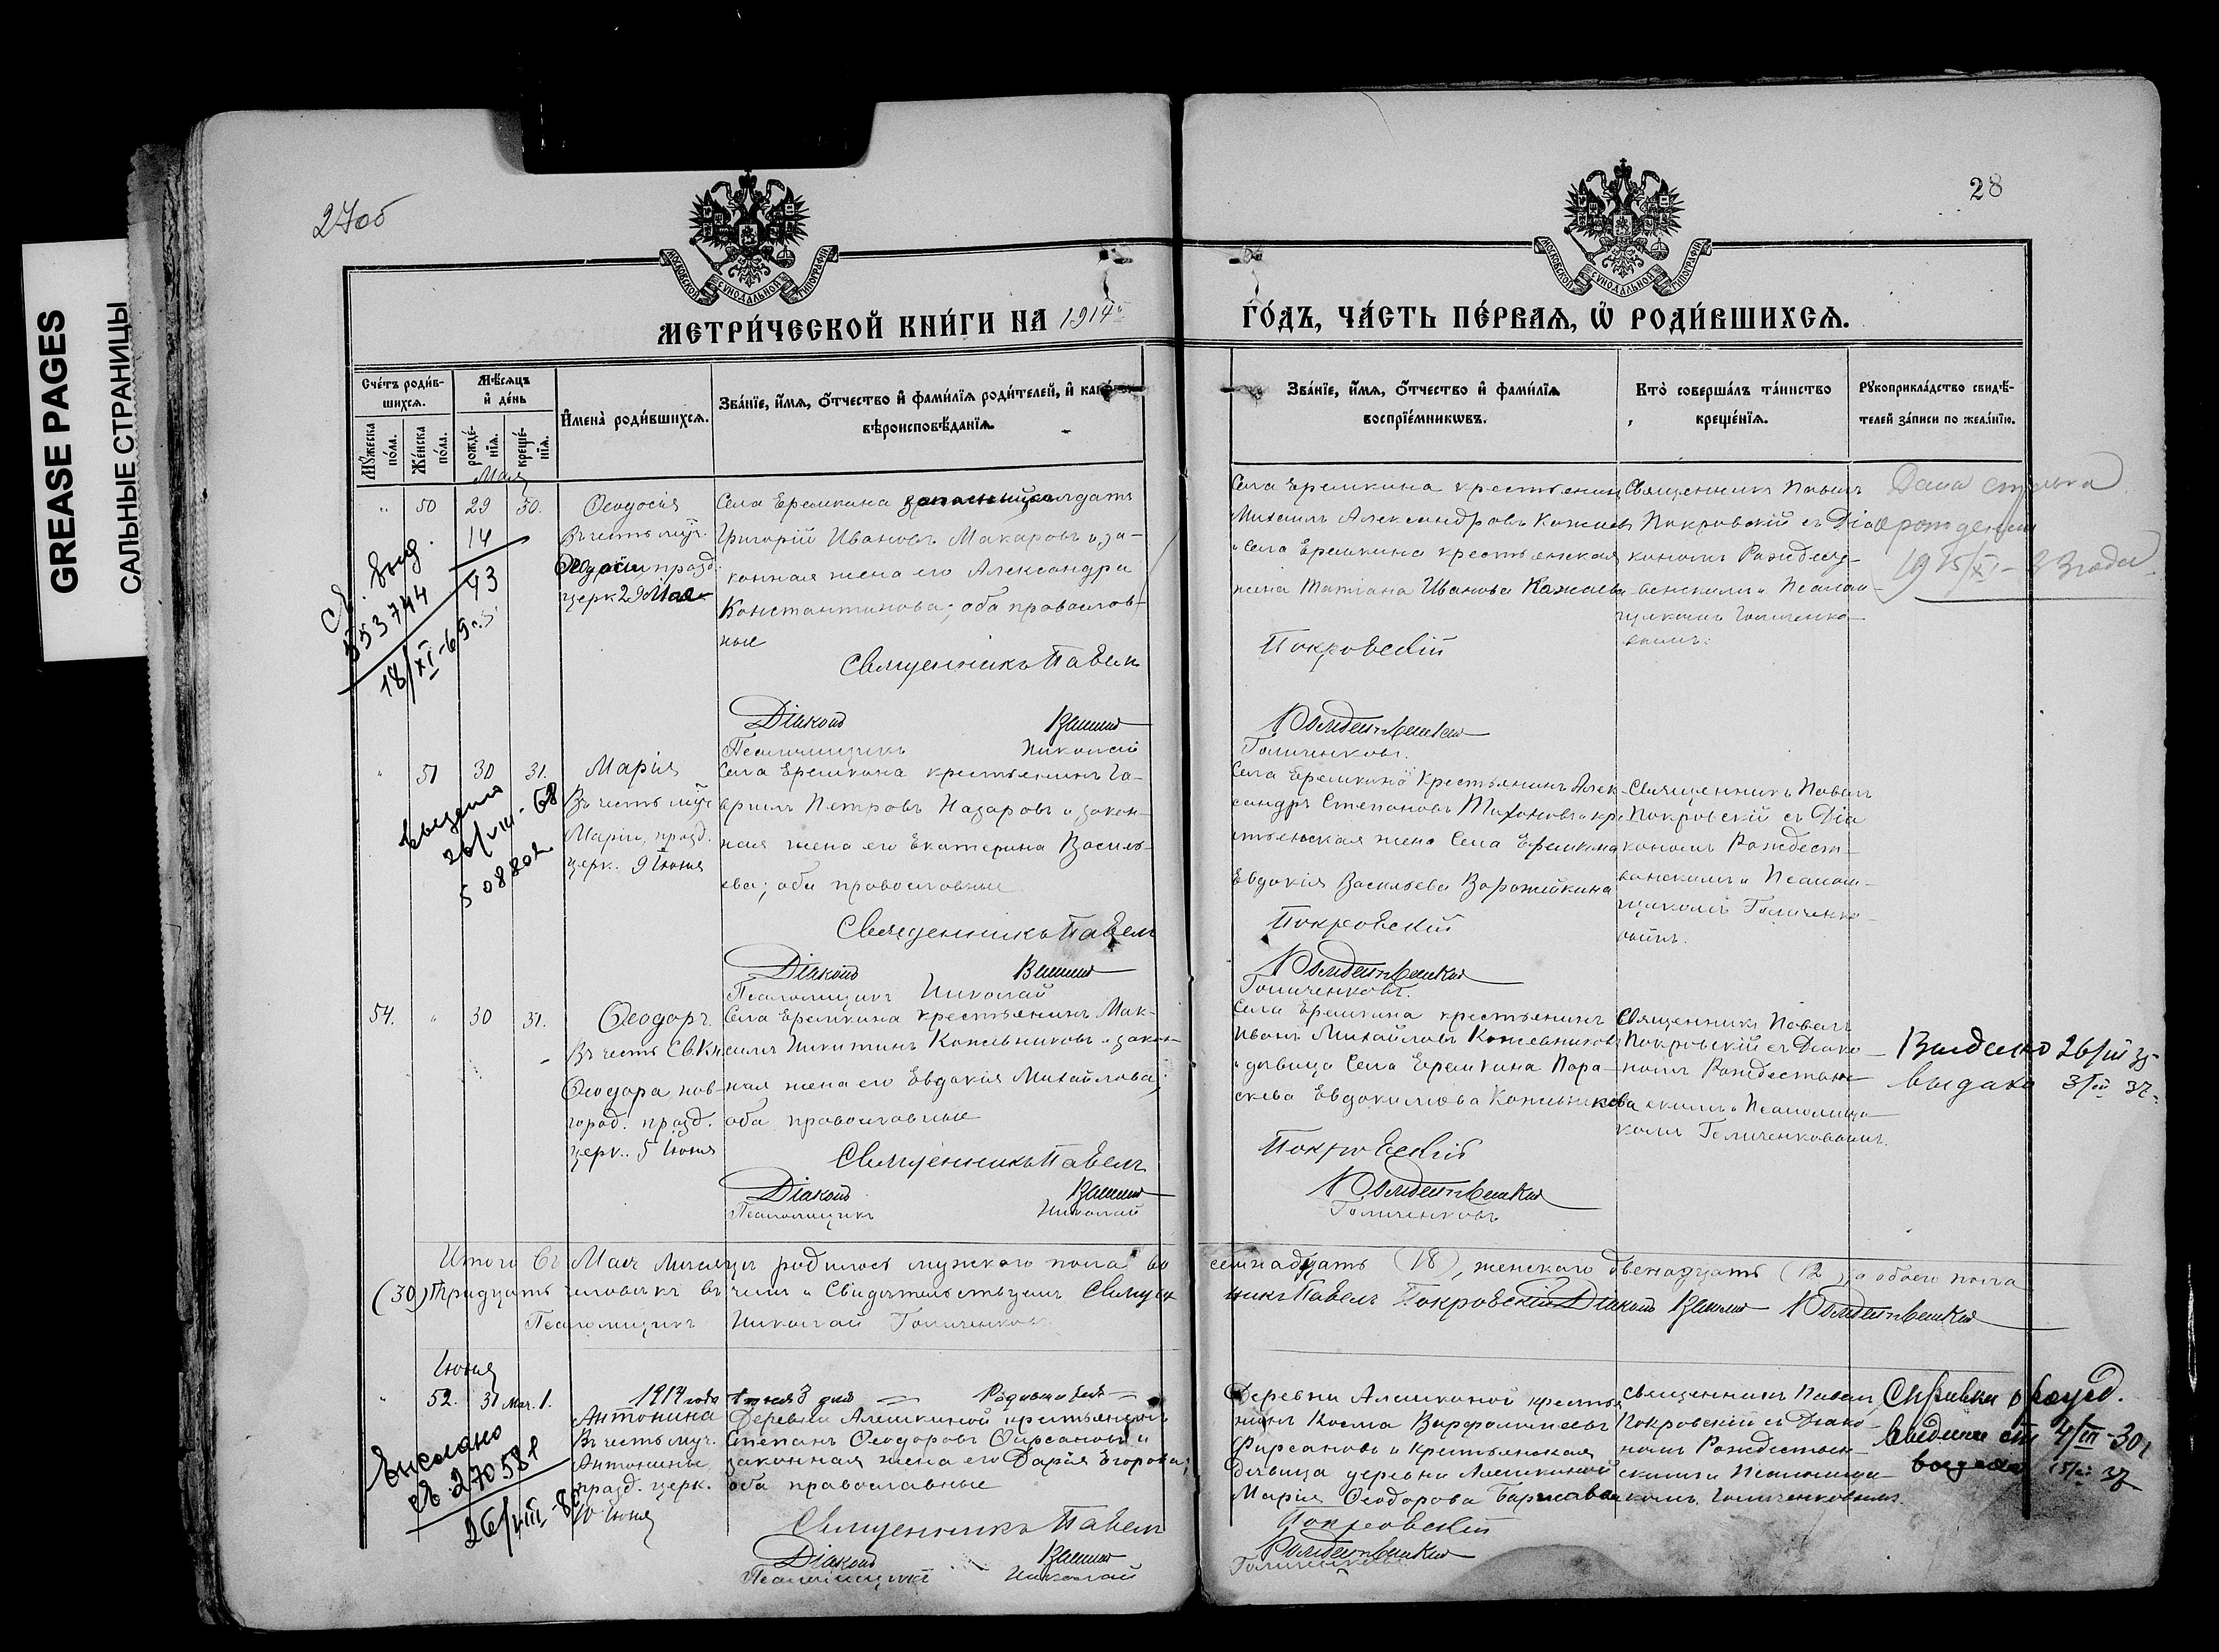 GREASE PAGES
САЛЬНЫЕ СТРАНИЦЫ
27об
28
МОСКОВСКОЙ СѴНОДАЛЬНОЙ ТИПОГРАФІИ
МОСКОВСКОЙ СѴНОДАЛЬНОЙ ТИПОГРАФІИ
МЕТРИ́ЧЕСКОЙ КНИ́ГИ НА 1914й
ГО́ДЪ, ЧА́СТЬ ПЕ́РВАѦ, Ѡ҆ РОДИ́ВШИХСѦ.
Сче́тъ роди́в-
шихсѧ.
Мꙋ́жеска по́ла.
Же́нска по́ла.
Мѣ́сѧцъ и҆ де́нь
рожде́нїѧ.
креще́нїѧ.
И҆мена̀ роди́вшихсѧ.
Зва́нїе, и҆́мѧ, ѻ҆́тчество и҆ фами́лїѧ роди́телей, и҆ како́гѡ
вѣроисповѣ́данїѧ.
Зва́нїе, и҆́мѧ, ѻ҆́тчество и҆ фами́лїѧ
воспрїе́мникѡвъ.
Кто̀ соверша́лъ та́инство
креще́нїѧ.
Рꙋкоприкла́дство свидѣ́-
телей за́писи по жела́нїю.
Мая
" 50 29 30.
Ѳеодосія
Въ честь муч.
Ѳеодосіи, празд.
церк. 29 Мая
Села Еремкина запасный солдатъ
Григорій Ивановъ Макаровъ и за-
конная жена его Александра
Константинова; оба православ-
ные
Священникъ Павелъ
Діаконъ
Псаломщикъ Николай
Села Еремкина крестьянинъ
Михаилъ Александровъ Кожаевъ
и села Еремкина крестьянская
жена Татіана Иванова Кожаева
Покровскій
Голиченковъ.
Священникъ Павелъ
Покровскій съ Діа-
кономъ Рождест-
венскимъ и Псалом-
щикомъ Голиченко-
вымъ.
14
43
св. выд.
553744
18/XI-69г.
" 51 30 31.
Марія
Въ честь муч
Маріи, празд.
церк. 9 Іюня
Села Еремкина крестьянинъ Га-
вріилъ Петровъ Назаровъ и закон-
ная жена его Екатерина Василь-
ева; оба православные
Священникъ Павелъ
Діаконъ
Псаломщикъ Николай
Села Еремкина крестьянинъ Алек-
сандръ Степановъ Тихоновъ и кре-
стьянская жена Села Еремкина
Евдокія Васильева Ворожейкина
Покровскій
Голиченковъ.
Священникъ Павелъ
Покровскій съ Діа
кономъ Рождест-
венскимъ и Псалом-
щикомъ Голиченко-
вымъ.
выдано
26/VIII-68
508802
54. " 30 31.
Ѳеодоръ.
Въ честь Св Кн
Ѳеодора нов-
город. празд.
церк. 5 Іюня
Села Еремкина крестьянинъ Мак-
симъ Никитинъ Кожевниковъ и закон-
ная жена его Евдокія Михайлова;
оба православные
Священникъ Павелъ
Діаконъ
Псаломщикъ Николай
Села Еремкина крестьянинъ
Иванъ Михайловъ Кожевниковъ
и дѣвица Села Еремкина Пара-
скева Евдокимова Кожевникова
Покровскій
Голиченковъ
Священникъ Павелъ
Покровскій съ Діако-
номъ Рождествен-
скимъ и Псаломщи-
комъ Голиченковымъ.
Выдано
выдано
Итого въ Маѣ мѣсяцѣ родилось мужскаго пола во
семнадцать (18), женскаго двенадцать (12), а обоего пола
(30) Тридцать человѣкъ въ чемъ и Свидѣтельствуемъ Священ
никъ Павелъ Покровскій Діаконъ
Псаломщикъ Николай Голиченковъ
Іюня
" 52. 31 Мая. 1.
Антонина
Въ честь муч.
Антонины,
празд. церк.
10 Іюня
Деревни Алешкиной крестьянинъ
Степанъ Ѳеодоровъ Фирсановъ и
законная жена его Дарія Егорова;
оба православные
Священникъ Павелъ
Діаконъ
Псаломщикъ Николай
Деревни Алешкиной крестья
нинъ Косма Варфоломеевъ
Фирсановъ и крестьянская
дѣвица деревни Алешкиной
Марія Ѳеодорова
Покровскій
Голиченковъ
Священникъ Павелъ
Покровскій съ Діако-
номъ Рождествен-
скимъ и Псаломщи-
комъ Голиченковымъ.
выслано
св. 270581